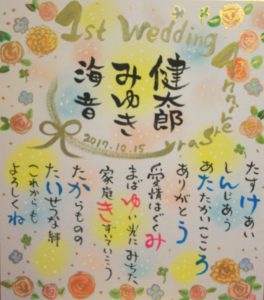 1st Wedding Anniversary
健太郎
みゆき
海音
2017.10.15
たすけあい
しんじあう
あたたかいこころ
ありがとう
愛情はぐくみ
まばゆい光にみちた
家庭きずいていこう
たからものの
たいせつな絆
これからも
よろしくね